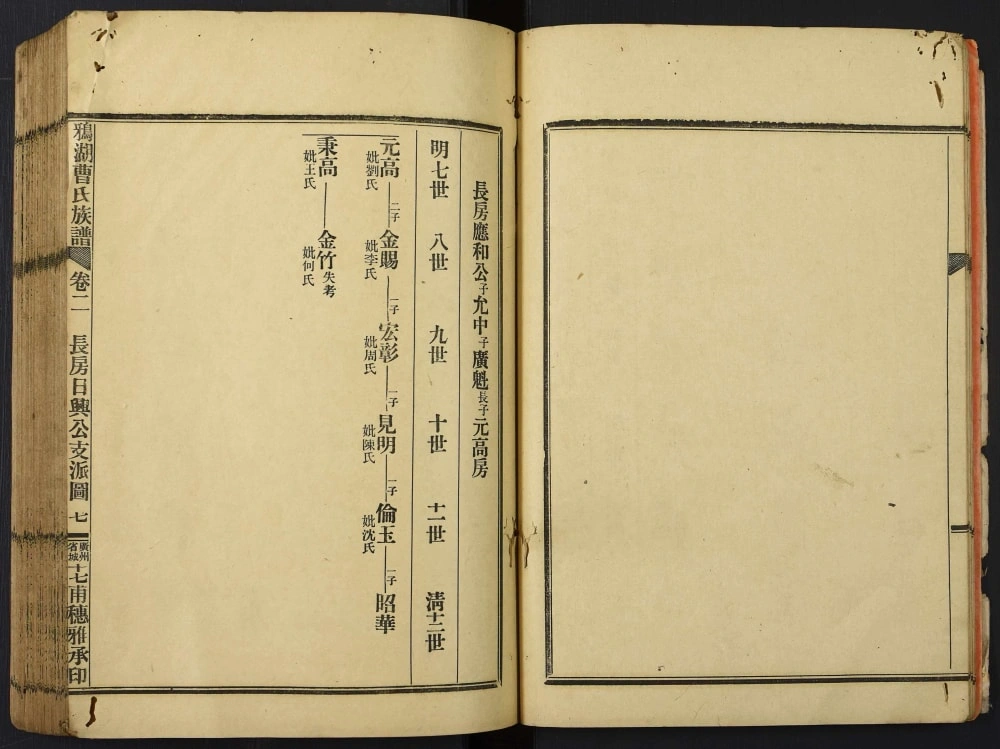 長房應和公子允中子廣魁長子元高房
明七世 八世 九世 十世 十一世 淸十二世
元高 二子 金賜 一子 宏彰 一子 見明 一子 倫玉 一子 昭華
妣劉氏 妣李氏 妣周氏 妣陳氏 妣沈氏
秉高 金竹 失考
妣王氏 妣何氏
鴉湖曹氏族譜 卷二 長房日興公支派圖 七 廣州省城十七甫穗雅承印